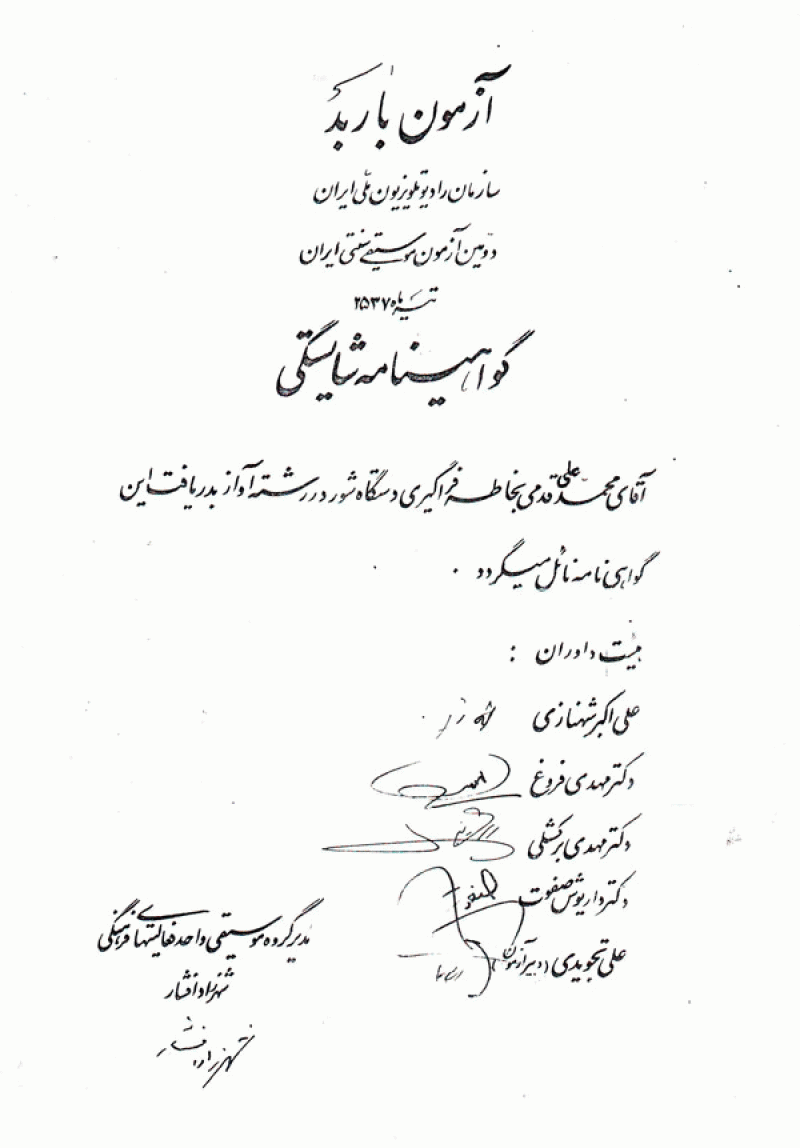 آزمون باربد
سازمان رادیو تلویزیون ملی ایران
دومین آزمون موسیقی سنتی ایران
تیر ماه ۲۵۳۷
گواهینامه شایستگی
آقای محمد علی قدمی بخاطر فراگیری دستگاه شور در رشته آواز بدریافت این
گواهی نامه نائل میگردد .
هیئت داوران :
علی اکبر شهنازی
دکتر مهدی فروغ
دکتر مهدی برکشلی
دکتر داریوش صفوت
علی تجویدی (دبیر آزمون)
مدیر گروه موسیقی واحد فعالیتهای فرهنگی
شهرزاد افشار
شهرزاد افشار